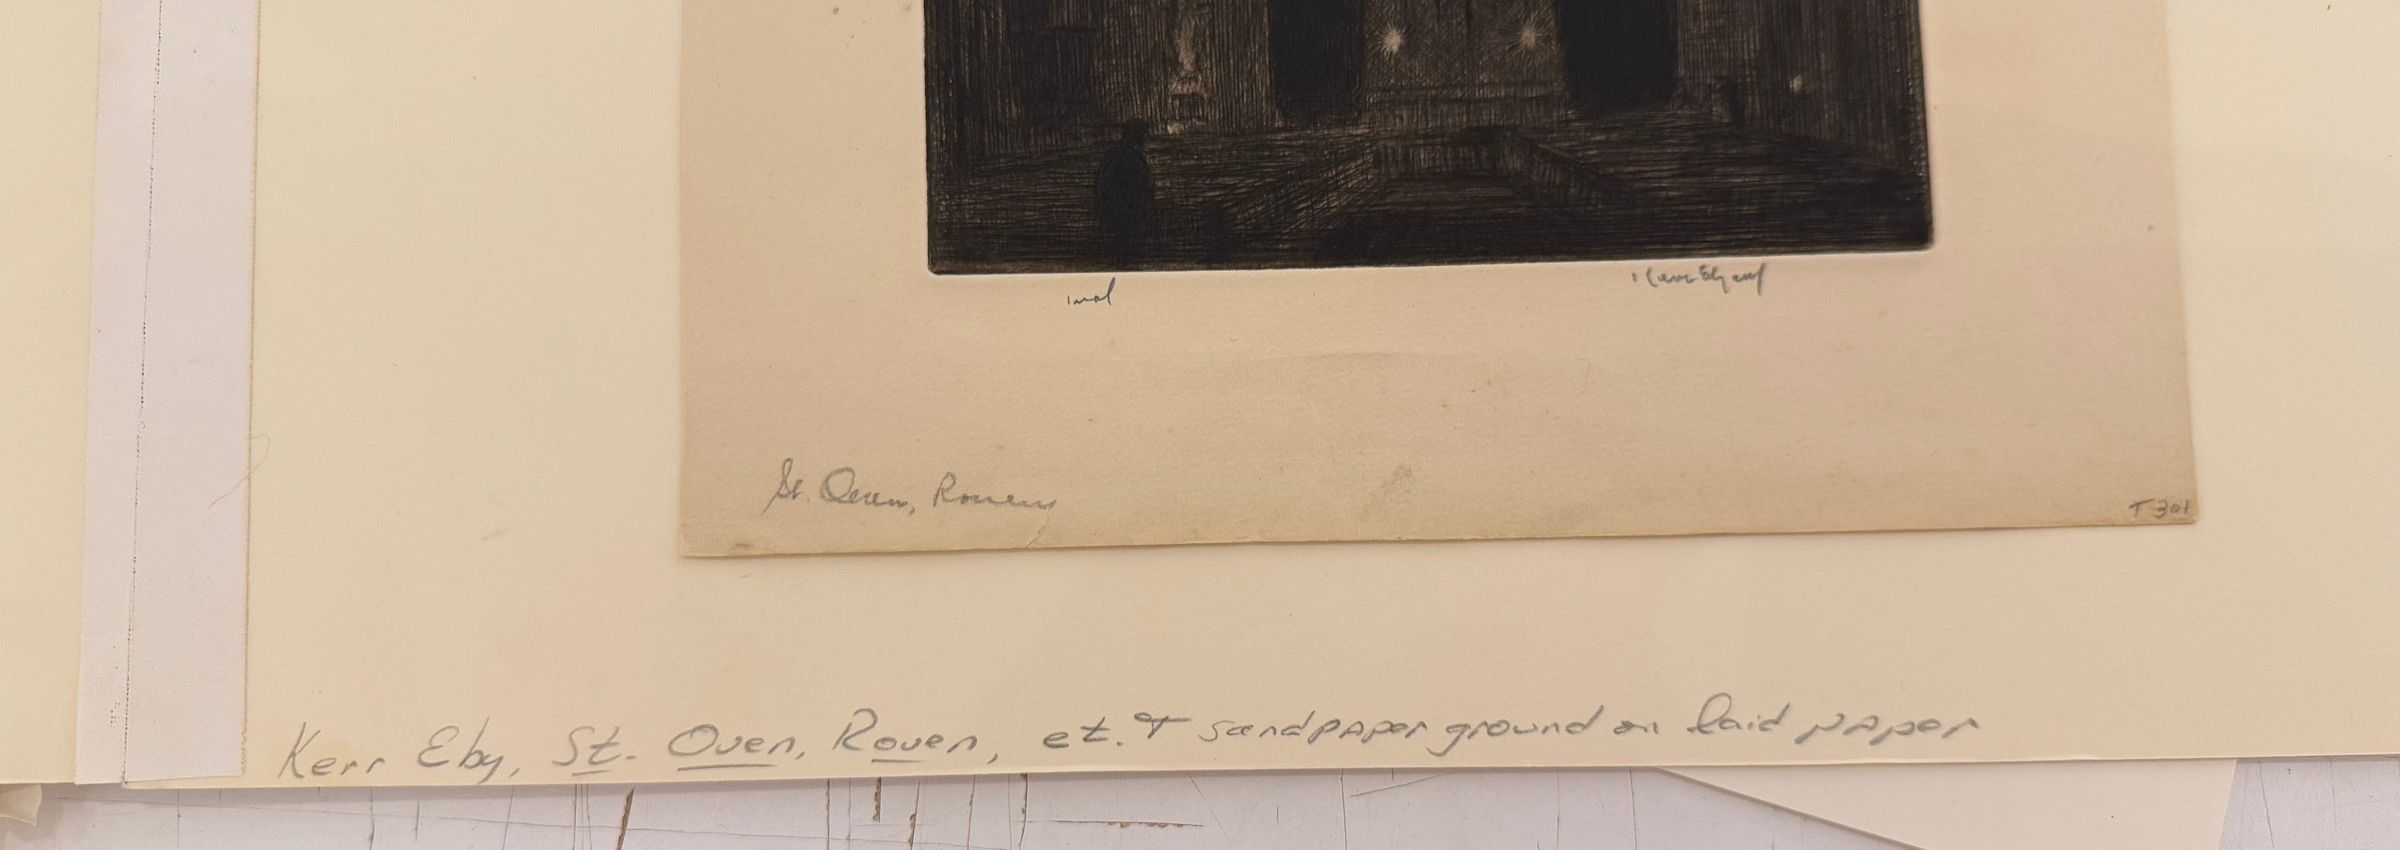 imp
Kerr Eby imp
St. Ouen, Rouen
T 301
Kerr Eby, St. Ouen, Rouen, et. & sandpaper ground on laid paper